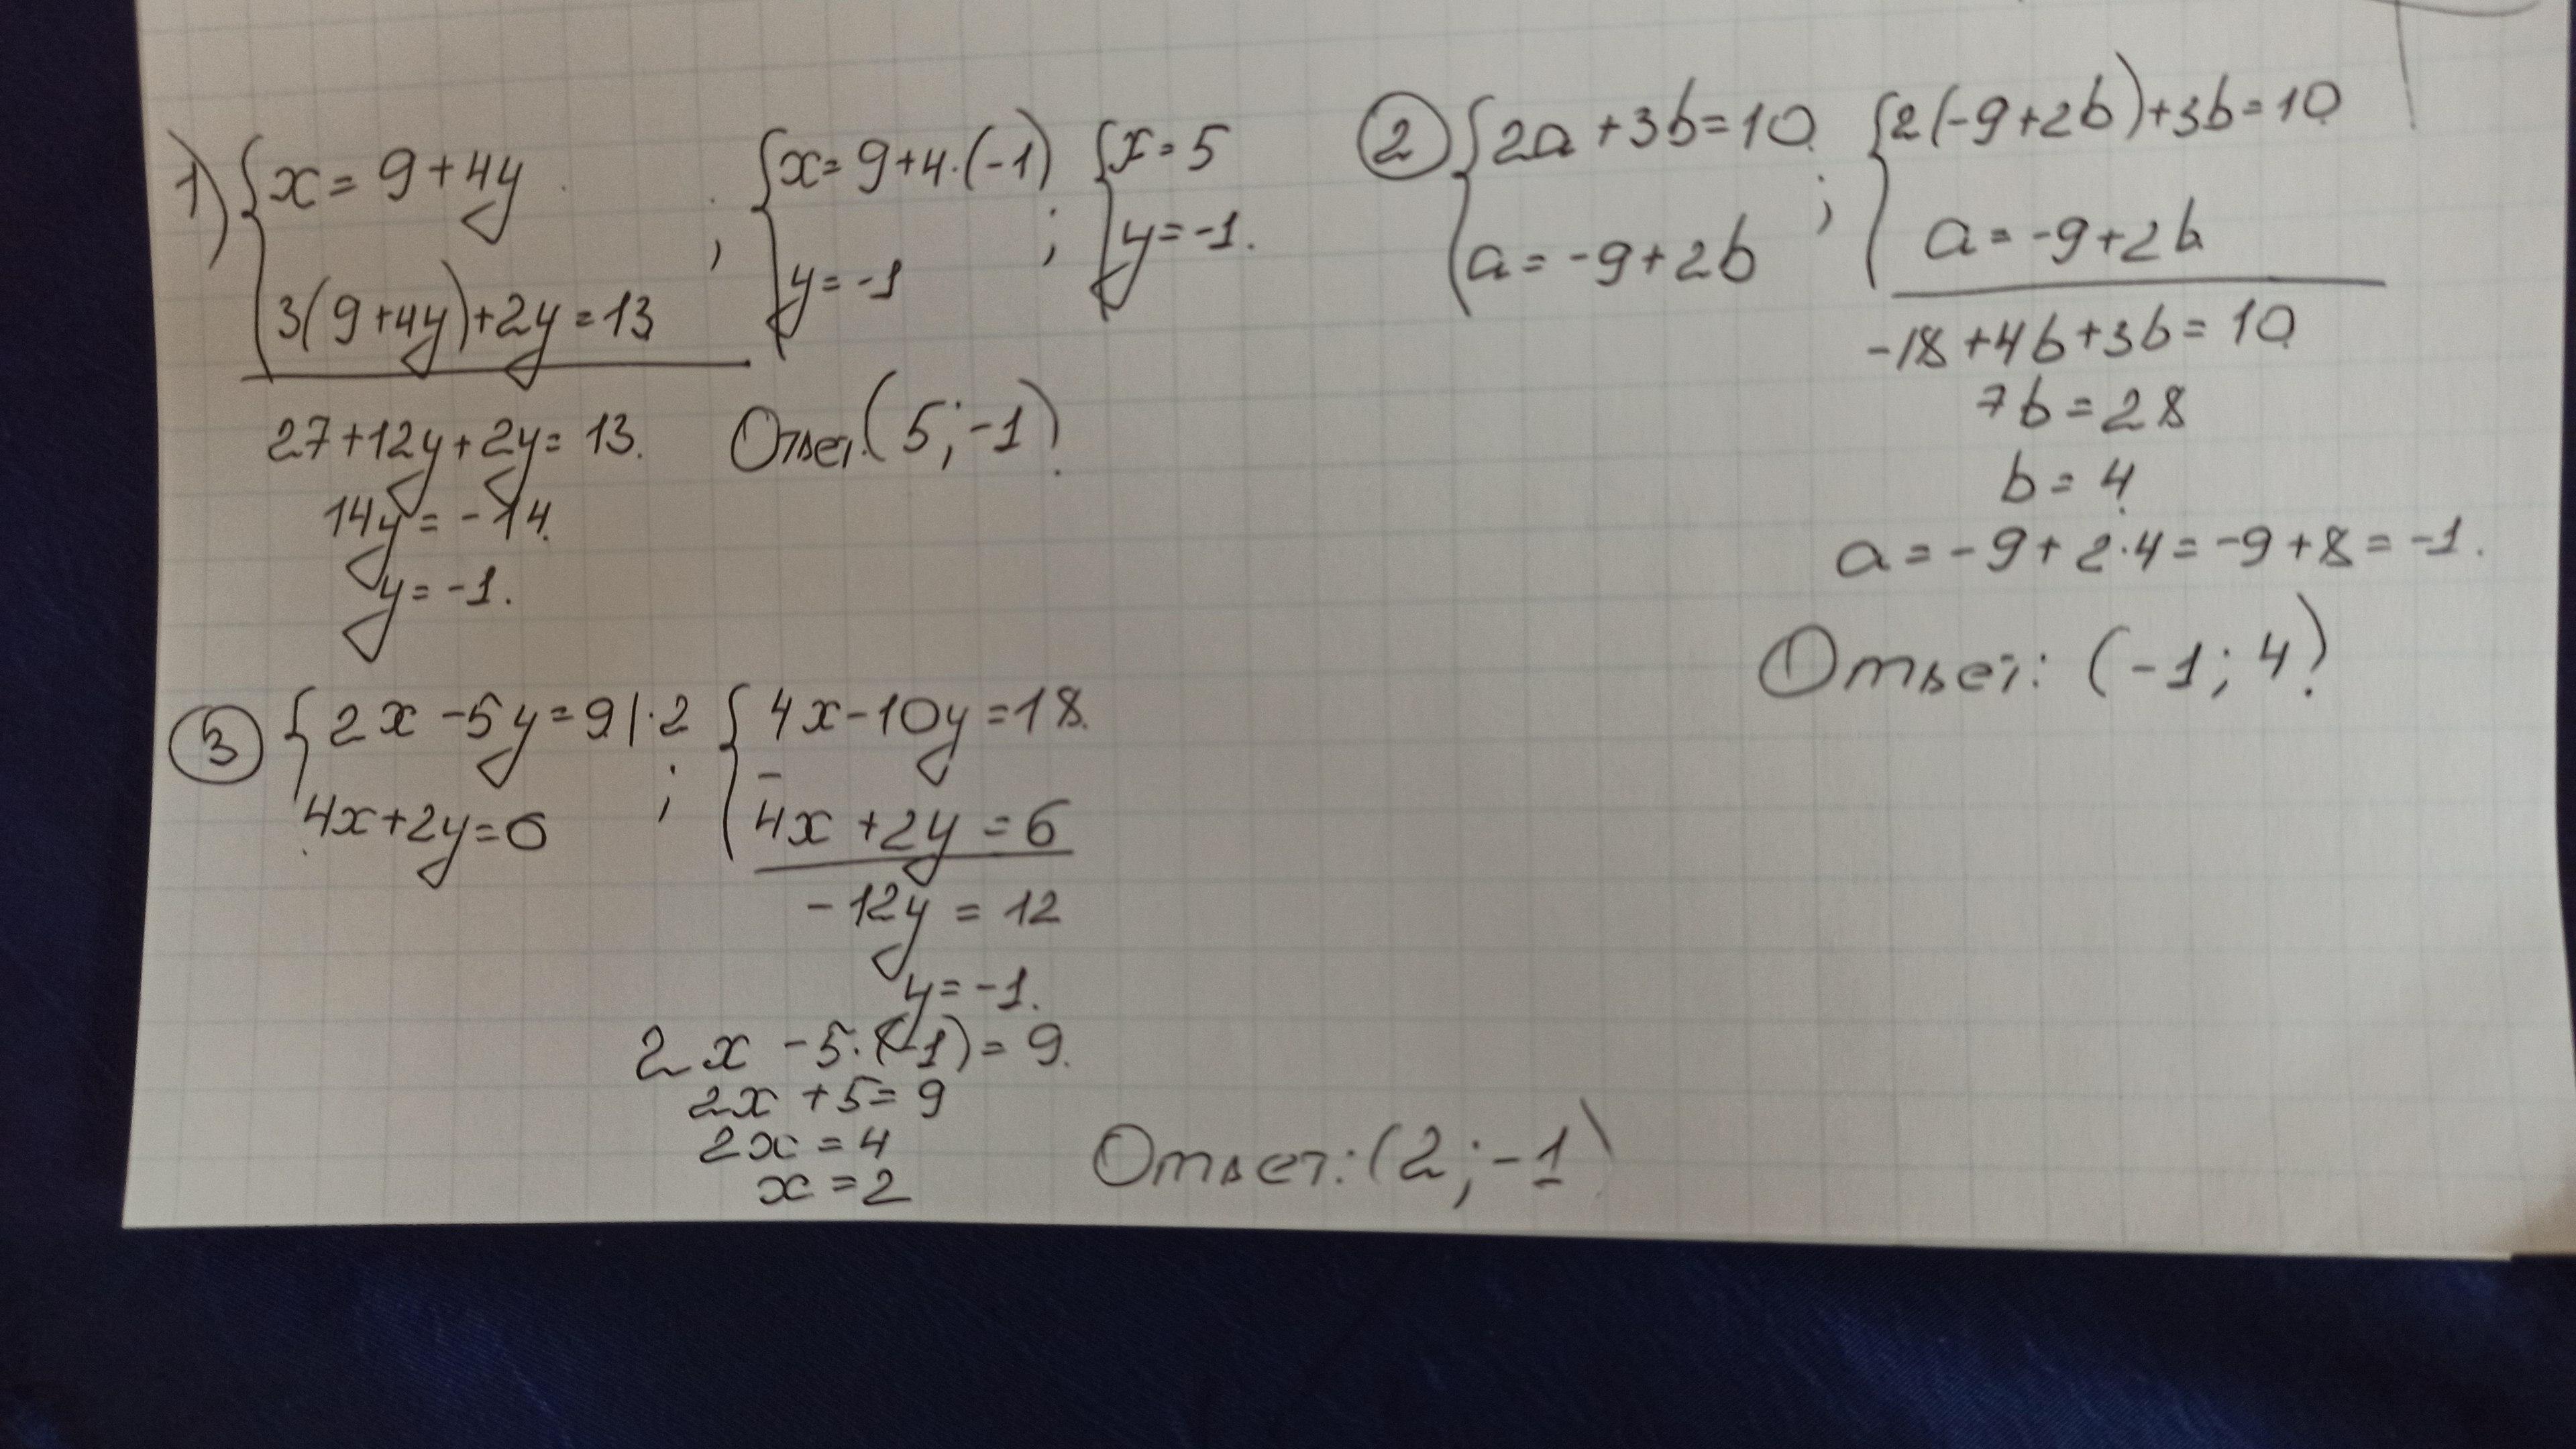 1) { x = 9 + 4y ; { x = 9 + 4·(-1) ; { x = 5
3(9+4y)+2y = 13 y = -1 y = -1.
27+12y+2y = 13.
14y = -14.
y = -1.
Ответ (5; -1).
② { 2a + 3b = 10 ; { 2(-9+2b)+3b = 10
a = -9+2b a = -9+2b
-18+4b+3b = 10
7b = 28
b = 4
a = -9+2·4 = -9+8 = -1.
Ответ: (-1; 4).
③ { 2x - 5y = 9 |·2 ; { 4x - 10y = 18
4x+2y = 6 - 4x + 2y = 6
-12y = 12
y = -1.
2x - 5·(-1) = 9.
2x + 5 = 9
2x = 4
x = 2
Ответ: (2; -1)